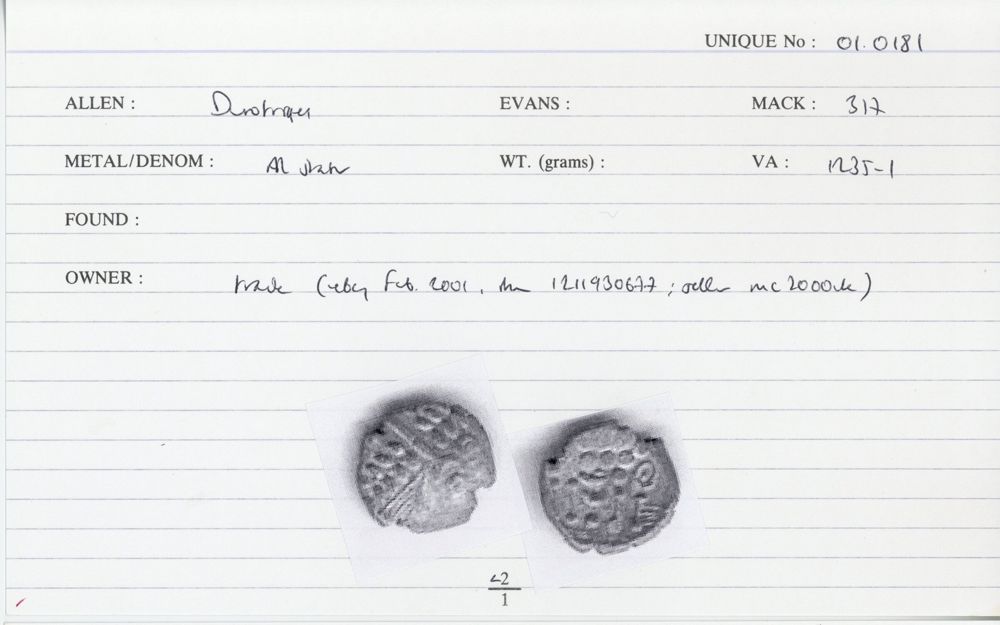 UNIQUE No : 01.0181
ALLEN : Durotriges EVANS : MACK : 317
METAL/DENOM : AR stater WT. (grams) : VA : 1235-1
FOUND :
OWNER : trade (ebay Feb. 2001, item 1211930677; seller mc2000uk)
<2
1